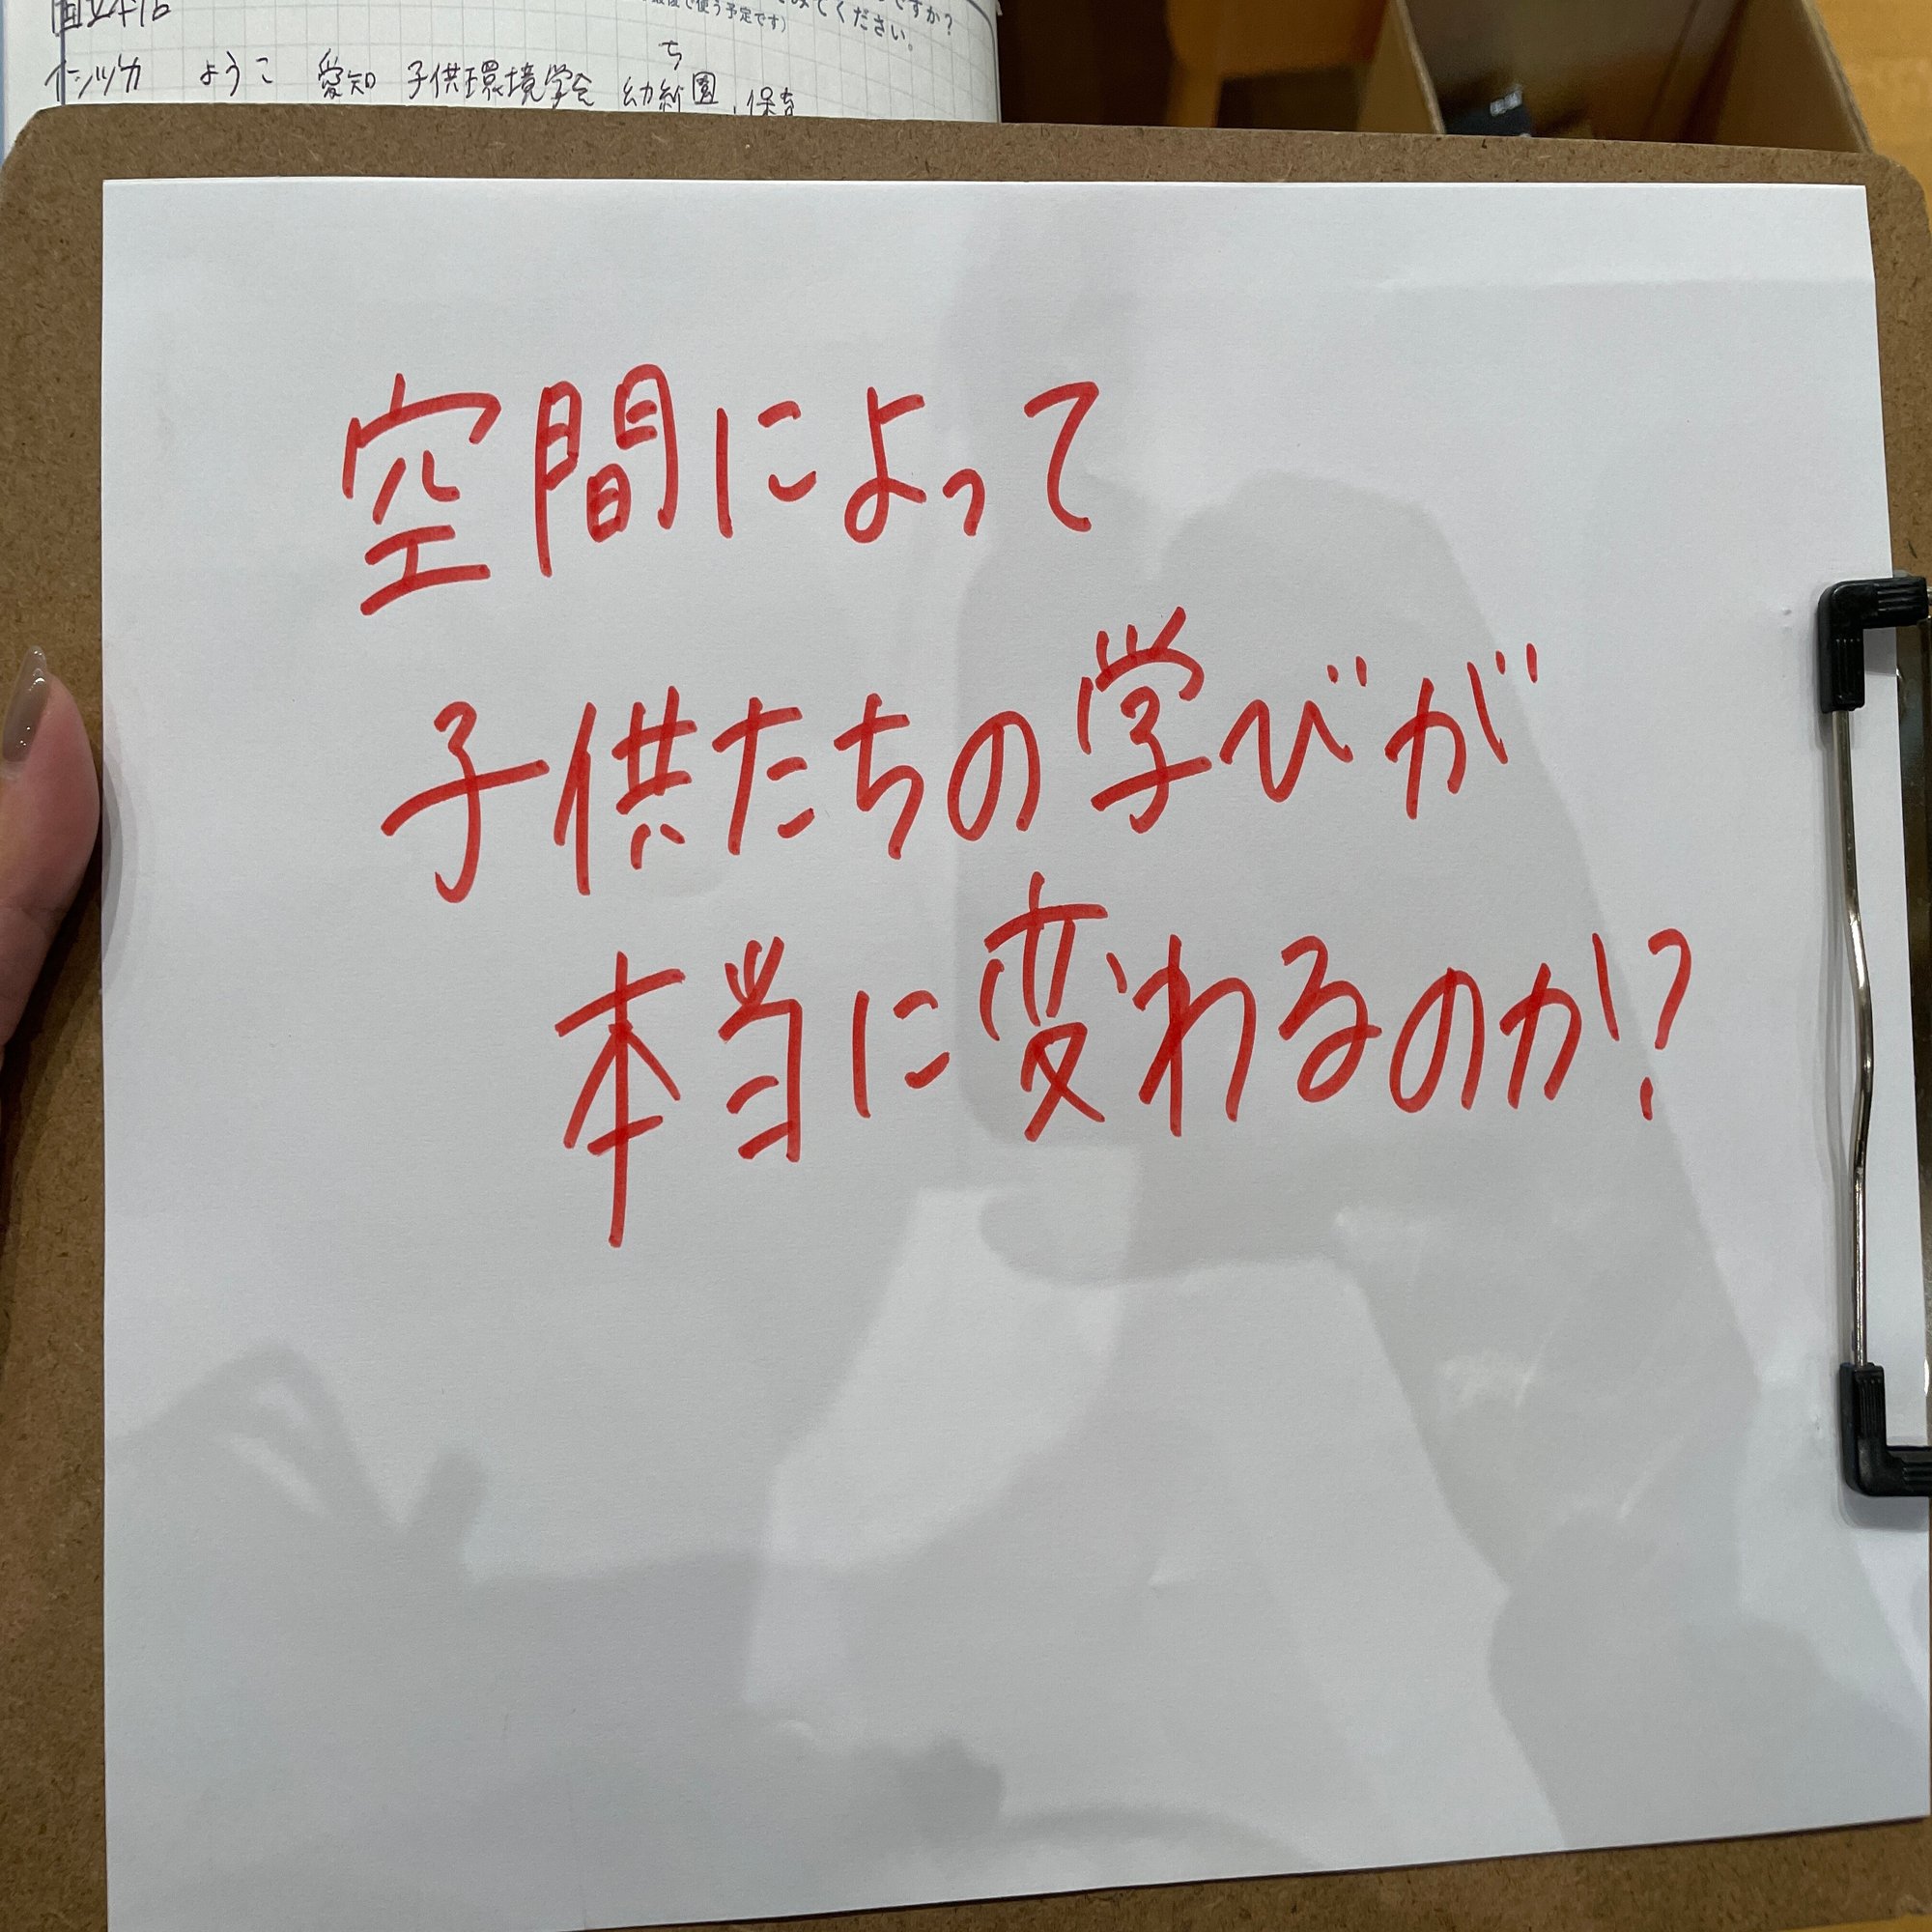 てみてください。
ですか?
最後で使う予定です)
イシヅカ ようこ 愛知 子供環境学会 幼稚園、保育
ち
空間によって
子供たちの学びが
本当に変わるのか!?